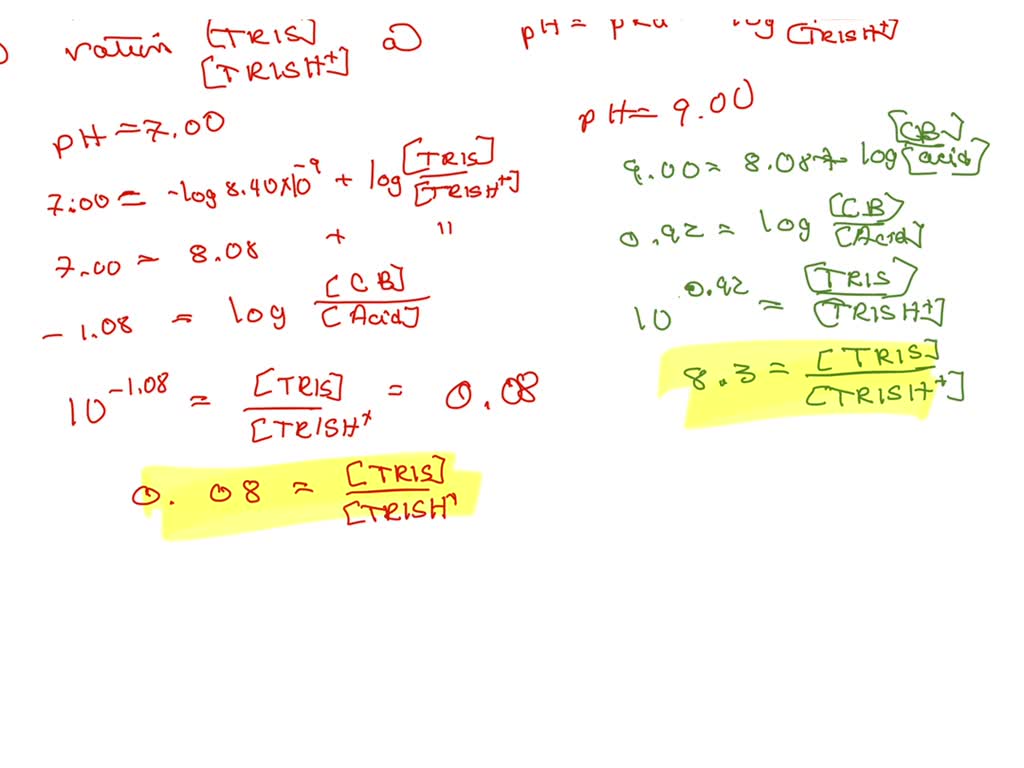 ration [TRIS] / [TRISH+] @
pH = pKa log / [TRISH+]
pH = 7.00
7.00 = -log 8.40x10^-9 + log [TRIS] / [TRISH+]
7.00 = 8.08 + "
-1.08 = log [CB] / [Acid]
10^-1.08 = [TRIS] / [TRISH+ = 0.08
0.08 = [TRIS] / [TRISH+
pH = 9.00
9.00 = 8.08 + log [CB] / [acid]
0.92 = log [CB] / [Acid]
10^0.92 = [TRIS] / [TRISH+]
8.3 = [TRIS] / [TRISH+]